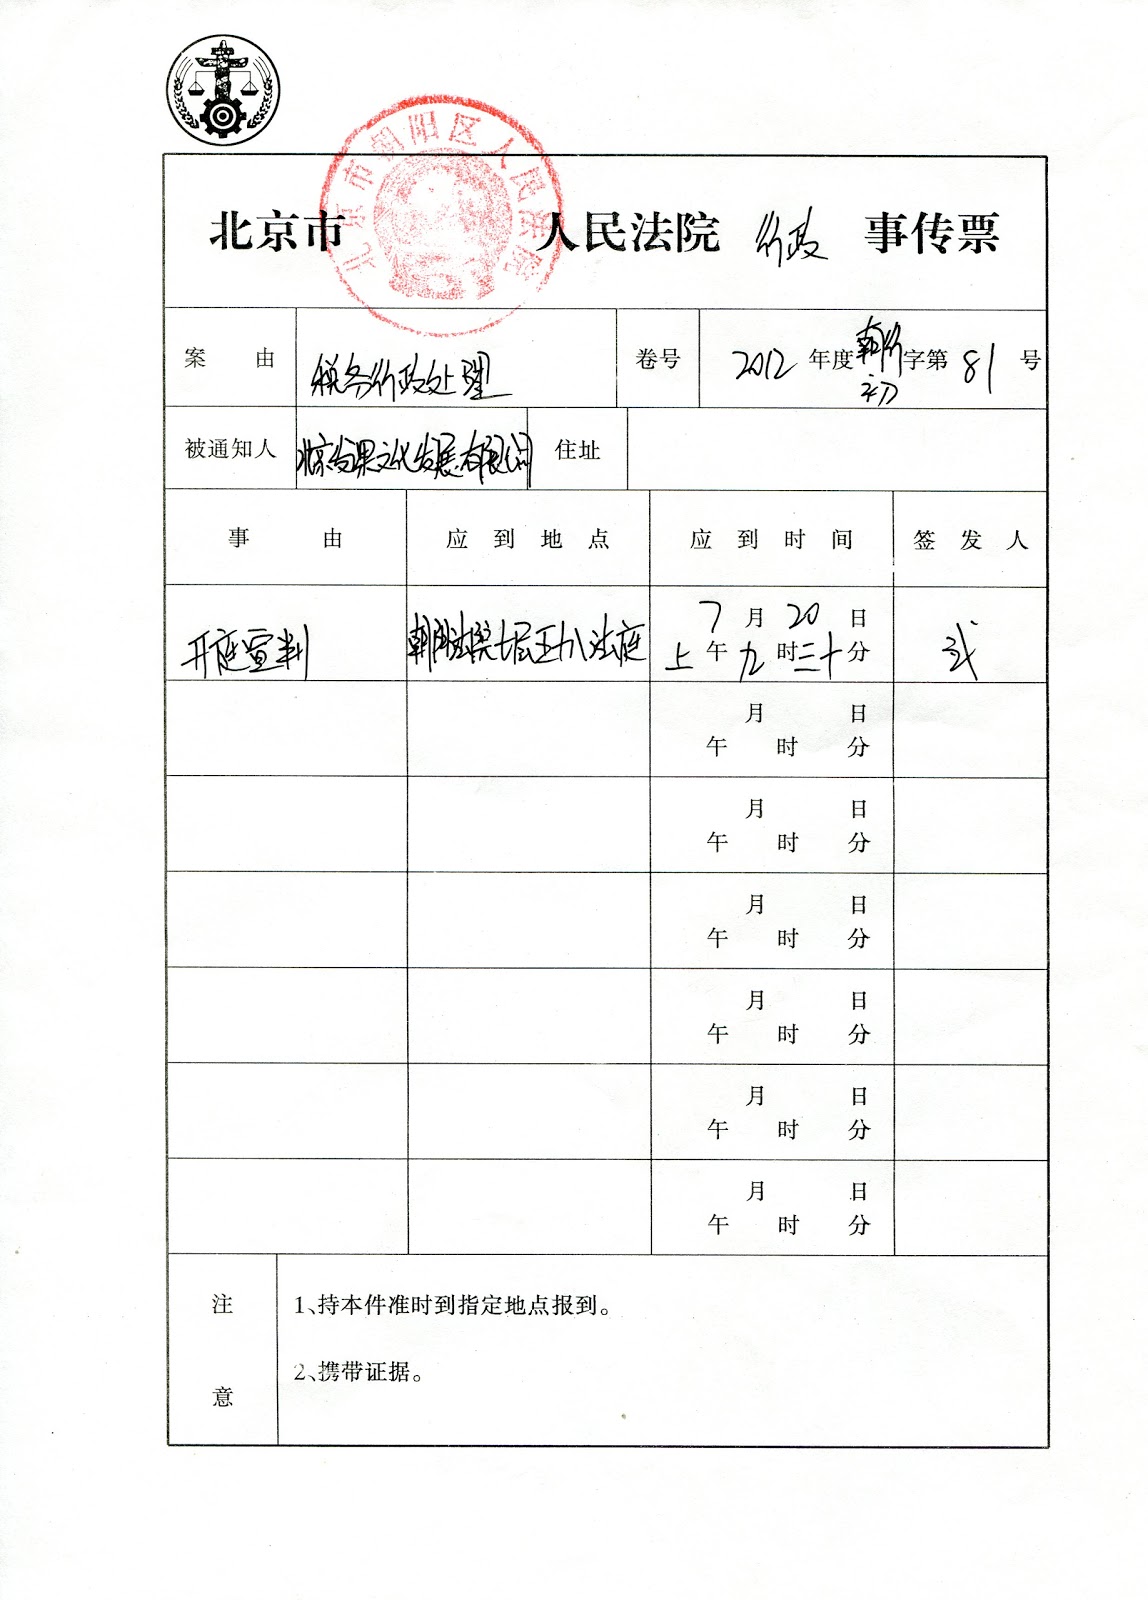 北京市朝阳区人民法院
北京市 人民法院 行政 事传票
案由 税务行政处理 卷号 2012 年度 朝行初 字第 81 号
被通知人 北京发课文化发展有限公司 住址
事由 应到地点 应到时间 签发人
7 月 20 日
开庭宣判 朝阳法院七层五十八法庭 上 午 九 时 三十 分
月 日
午 时 分
月 日
午 时 分
月 日
午 时 分
月 日
午 时 分
月 日
午 时 分
月 日
午 时 分
注意
1、持本件准时到指定地点报到。
2、携带证据。